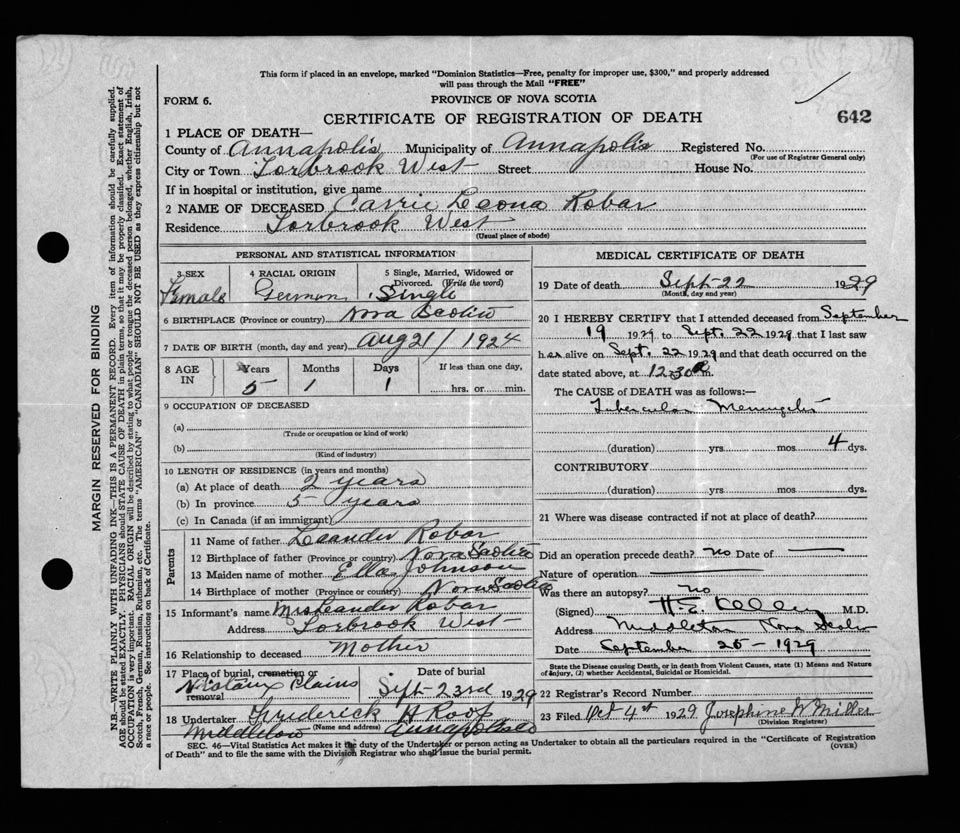 This form if placed in an envelope, marked "Dominion Statistics—Free, penalty for improper use, $300," and properly addressed
will pass through the Mail "FREE"
FORM 6.
PROVINCE OF NOVA SCOTIA
642
CERTIFICATE OF REGISTRATION OF DEATH
1 PLACE OF DEATH—
County of Annapolis Municipality of Annapolis Registered No.
(For use of Registrar General only)
City or Town Torbrook West Street House No.
If in hospital or institution, give name
2 NAME OF DECEASED Carrie Leona Robar
Residence Torbrook West
(Usual place of abode)
PERSONAL AND STATISTICAL INFORMATION
3 SEX 4 RACIAL ORIGIN 5 Single, Married, Widowed or
Divorced. (Write the word)
Female German Single
6 BIRTHPLACE (Province or country) Nova Scotia
7 DATE OF BIRTH (month, day and year) Aug 21/ 1924
8 AGE IN Years Months Days If less than one day,
5 1 1 hrs. or min.
9 OCCUPATION OF DECEASED
(a)
(Trade or occupation or kind of work)
(b)
(Kind of industry)
10 LENGTH OF RESIDENCE (in years and months)
(a) At place of death 2 years
(b) In province 5 years
(c) In Canada (if an immigrant)
Parents
11 Name of father Leander Robar
12 Birthplace of father (Province or country) Nova Scotia
13 Maiden name of mother Ella Johnson
14 Birthplace of mother (Province or country) Nova Scotia
15 Informant's name Mrs Leander Robar
Address Torbrook West
16 Relationship to deceased Mother
17 Place of burial, cremation or Date of burial
removal
Nictaux Plains Sept 23rd 1929
18 Undertaker Frederick H Roop
(Name and address)
Middleton Annapolis Co
MEDICAL CERTIFICATE OF DEATH
19 Date of death Sept-22 1929
(Month, day and year)
20 I HEREBY CERTIFY that I attended deceased from September
19 1929 to Sept. 22 1929 that I last saw
her alive on Sept. 22 1929 and that death occurred on the
date stated above, at 12.30 m.
The CAUSE of DEATH was as follows:—
Tubercular Meningitis
(duration) yrs. mos. 4 dys.
CONTRIBUTORY
(duration) yrs. mos. dys.
21 Where was disease contracted if not at place of death?
Did an operation precede death? no Date of
Nature of operation
Was there an autopsy? no
(Signed) H. E. Kelley M.D.
Address Middleton Nova Scotia
Date September 25 - 1929
State the Disease causing Death, or in death from Violent Causes, state (1) Means and Nature
of Injury, (2) whether Accidental, Suicidal or Homicidal.
22 Registrar's Record Number
23 Filed Oct 4th 1929 Josephine W Miller
(Division Registrar)
SEC. 46—Vital Statistics Act makes it the duty of the Undertaker or person acting as Undertaker to obtain all the particulars required in the "Certificate of Registration
of Death" and to file the same with the Division Registrar who shall issue the burial permit.
(OVER)
MARGIN RESERVED FOR BINDING
N.B.—WRITE PLAINLY WITH UNFADING INK—THIS IS A PERMANENT RECORD. Every item of information should be carefully supplied.
AGE should be stated EXACTLY. PHYSICIANS should STATE CAUSE OF DEATH in plain terms, so that it may be properly classified. Exact statement of
OCCUPATION is very important. RACIAL ORIGIN will be described by stating to what people or tongue the deceased person belonged, whether English, Irish,
Scotch, French, German, Russian, Ruthenian, etc. The terms "AMERICAN" or "CANADIAN" SHOULD NOT BE USED as they express citizenship but not
a race or people. See instructions on back of Certificate.